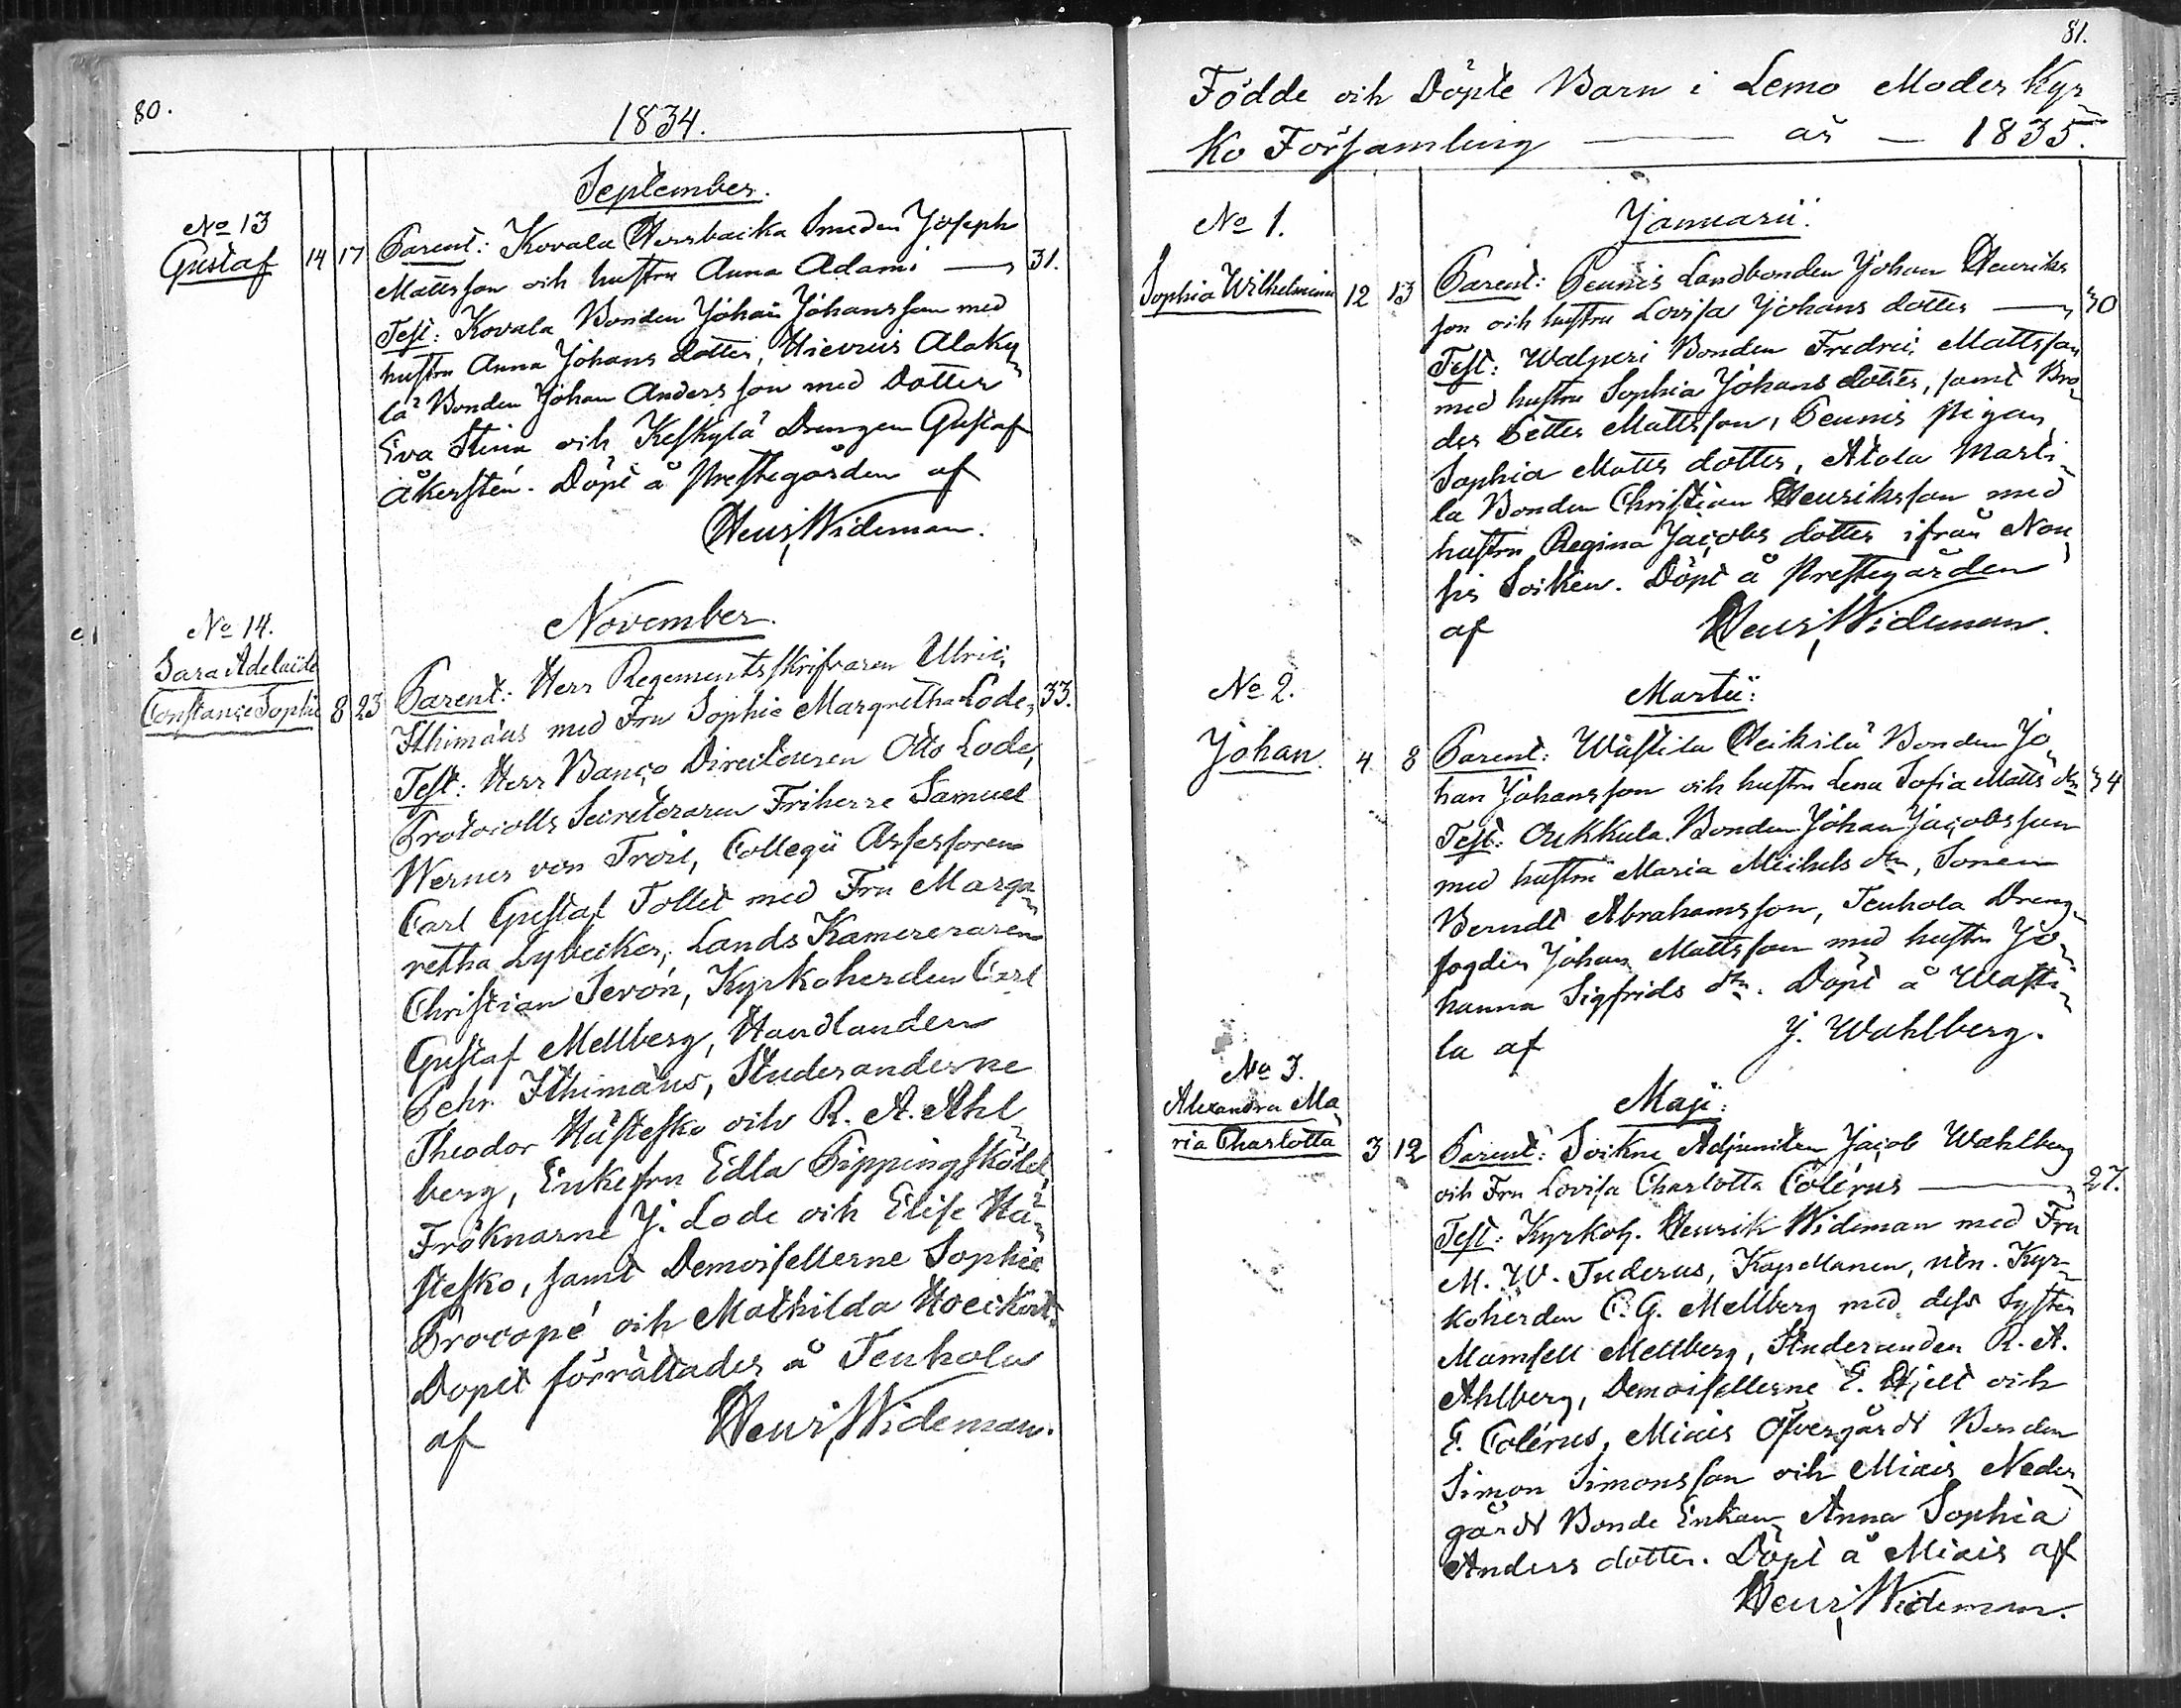 80.
1834.
September.
No 13
Gustaf 14 17 Parent: Kovala Herrbacka Smeden Joseph
Mattsson och hustru Anna Adami — 31.
Test: Kovala Bonden Johan Johansson med
hustru Anna Johans dotter, Alaky
lä Bonden Johan Andersson med Dotter
Eva Stina och Keskylä Drengen Gustaf
Åkersten. Döpt å Prestegården af
Henr. Wideman.
November.
No 14.
Sara Adelaide
Constance Sophie 8 23 Parent: Herr Regementsskrifvaren Ulric
Ithimäus med Fru Sophie Margretha Lode, 33.
Test: Herr Banco Directeuren Otto Lode,
Protocolls Secreteraren Friherre Samuel
Werner von Troil, Collegii Assessoren
Carl Gustaf Tollet med Fru Marga
retha Lybecker, Lands Kamereraren
Christian Jerón, Kyrkoherden Carl
Gustaf Mellberg, Handlanden
Pehr Ithimäus, Studeranderne
Theodor Hästesko och R. A. Ahl
berg, Enkefru Edla Pippingsköld,
Fröknarne J. Lode och Elise Hä
stesko, samt Demoisellerne Sophie
Procopé och Mathilda Hoeckert.
Dopet förrättades å Tenhola
af Henr. Wideman.
81.
Födde och Döpte Barn i Lemo Moder Kyr
ko Församling — år — 1835.
Januarii.
No 1.
Sophia Wilhelmina 12 13 Parent: Peunis Landbonden Johan Henriks
son och hustru Lovisa Johans dotter — 30
Test: Walperi Bonden Fredric Mattsson
med hustru Sophia Johans dotter, samt Bro
der Petter Mattsson, Peunis pigan
Sophia Matts dotter, Atola Marti
la Bonden Christian Henriksson med
hustru Regina Jacobs dotter ifrån Nou
sis Socken. Döpt å Prestegården
af Henr. Wideman.
Martii:
No 2.
Johan. 4 8 Parent: Wästila Heikilä Bonden Jo
han Johansson och hustru Lena Sofia Matts dr 34
Test: Orkkula Bonden Johan Jacobsson
med hustru Maria Michels dr, Sonen
Berndt Abrahamsson, Tenhola Dreng
fogden Johan Mattsson med hustru Jo
hanna Sigfrids dr. Döpt å Wasti
la af J. Wahlberg.
Maji:
No 3.
Alexandra Ma
ria Charlotta 3 12 Parent: Sockne Adjuncten Jacob Wahlberg
och Fru Lovisa Charlotta Colérus — 27.
Test: Kyrkoh. Henrik Wideman med Fru
M. W. Tuderus, Kapellanen, utn. Kyr
koherden C. G. Mellberg med dess Syster
Mamsell Mellberg, Studeranden R. A.
Ahlberg, Demoisellerne E. Hjelt och
E. Colérus, Miais Öfvergårdt Bonden
Simon Simonsson och Miais Neder
gårdt Bonde Enkan Anna Sophia
Anders dotter. Döpt å Miais af
Henr. Wideman.